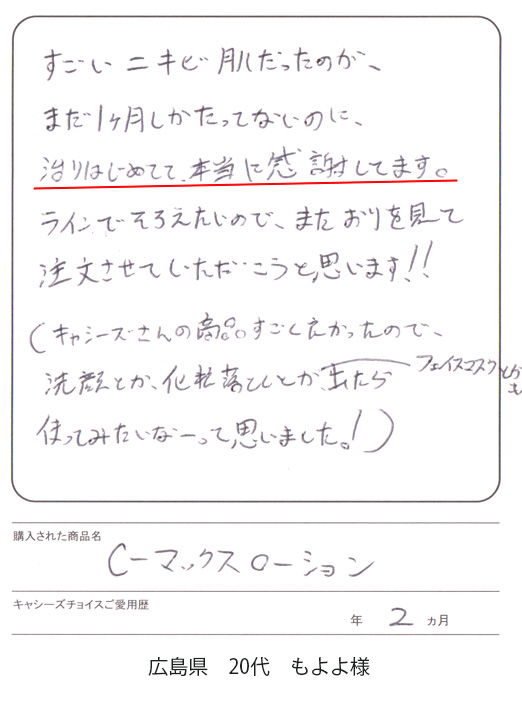 すごいニキビ肌だったのが、
まだ1ヶ月しかたってないのに、
治りはじめてて、本当に感謝してます。
ラインでそろえたいので、またおりを見て
注文させていただこうと思います!!
(キャシーズさんの商品すごく良かったので、
洗顔とか、化粧落としとか、出たら
フェイスマスクとかも
使ってみたいなーって思いました。!)
購入された商品名
Cーマックスローション
キャシーズチョイスご愛用歴
年 2 ヵ月
広島県 20代 もよよ様